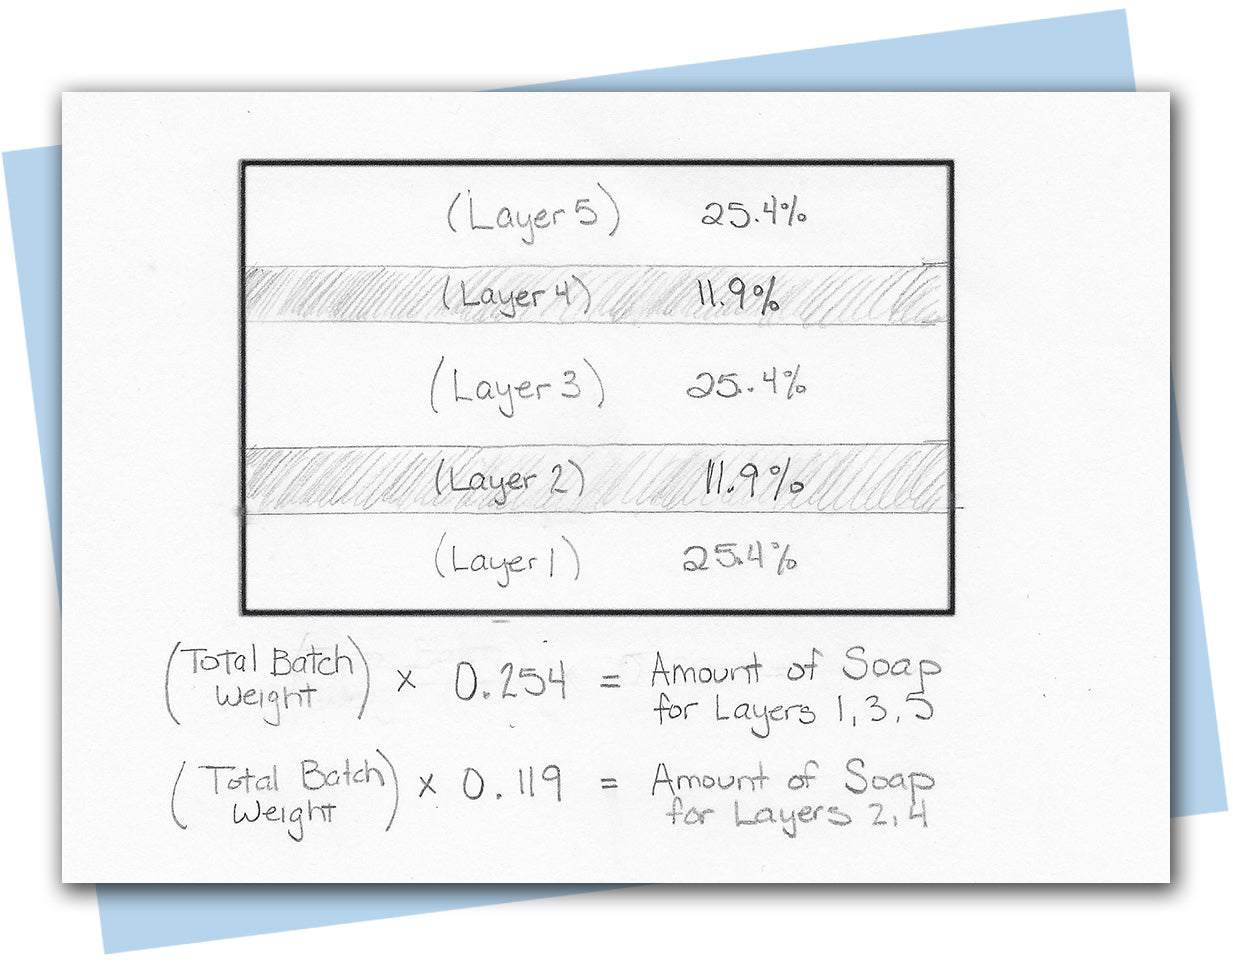 (Layer 5) 25.4%
(Layer 4) 11.9%
(Layer 3) 25.4%
(Layer 2) 11.9%
(Layer 1) 25.4%
(Total Batch Weight) × 0.254 = Amount of Soap for Layers 1, 3, 5
(Total Batch Weight) × 0.119 = Amount of Soap for Layers 2, 4